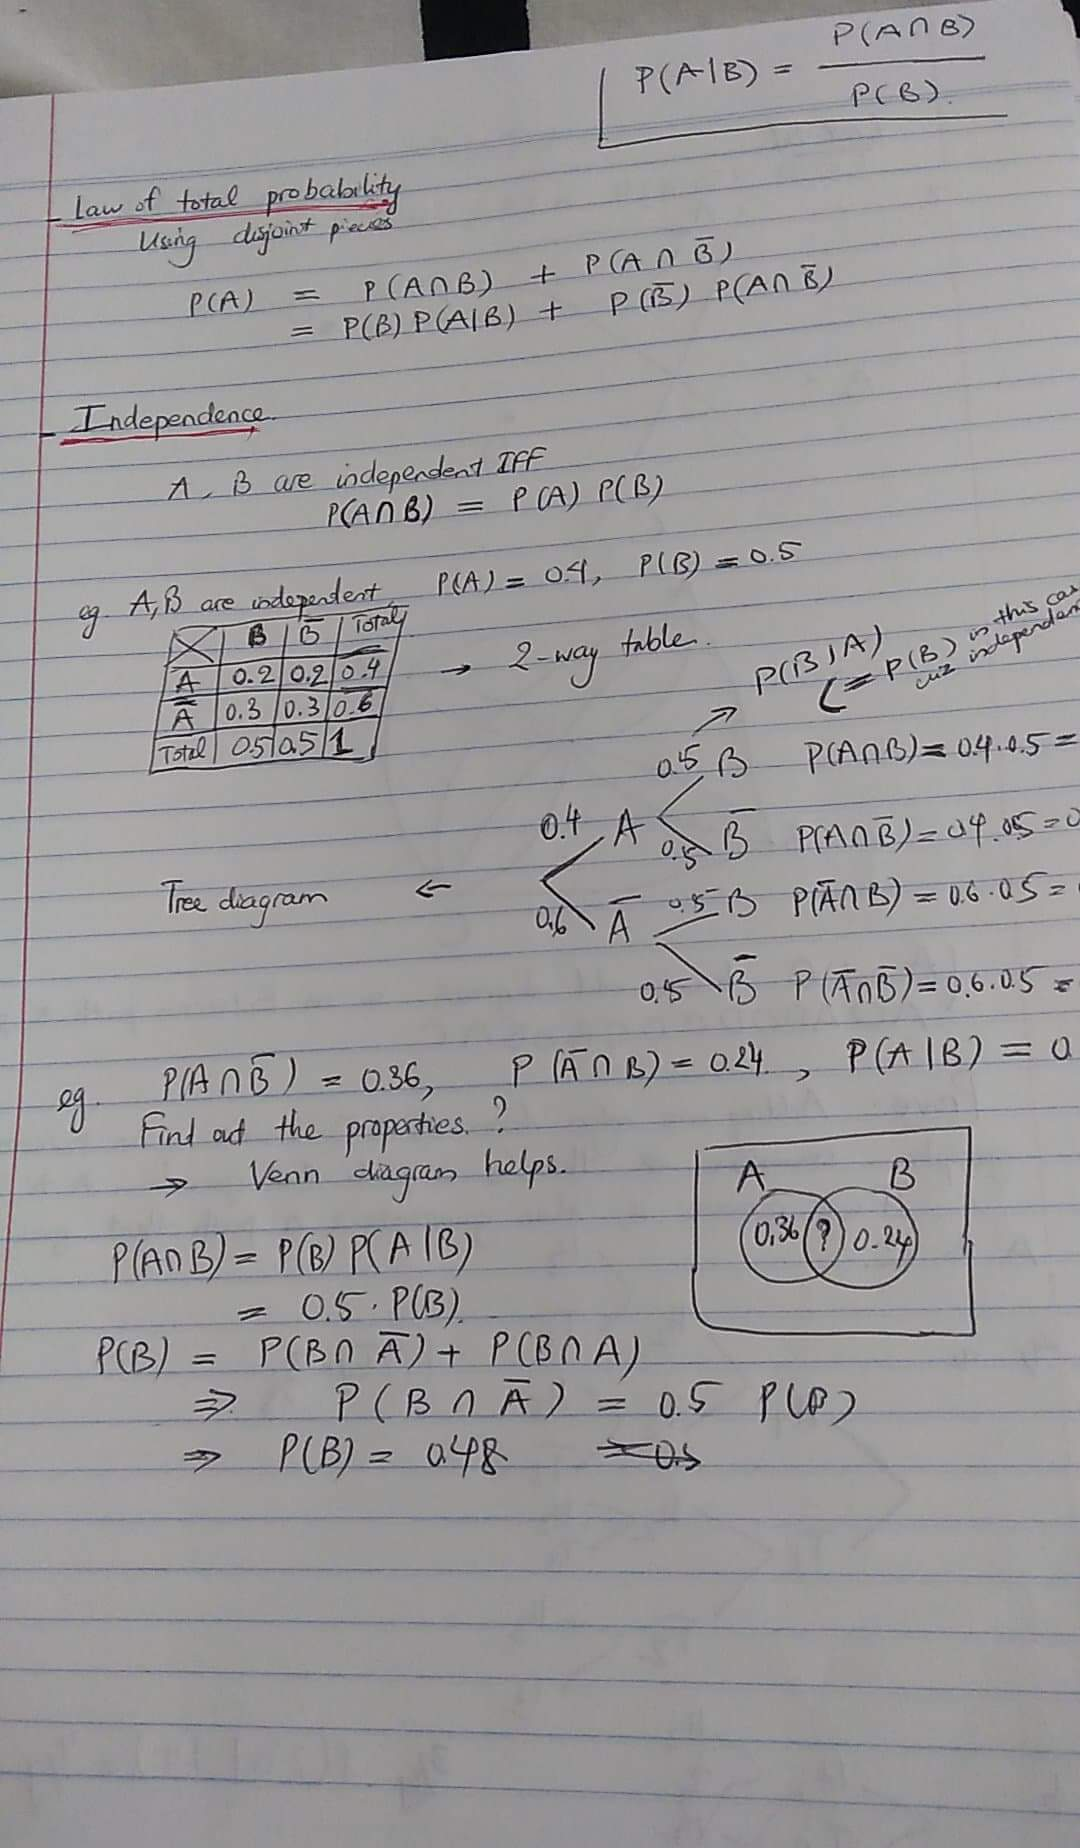 P(A|B) = P(A∩B) / P(B).
Law of total probability
Using disjoint pieces
P(A) = P(A∩B) + P(A∩B̄)
= P(B) P(A|B) + P(B̄) P(A∩B̄)
Independence.
A, B are independent IFF
P(A∩B) = P(A) P(B)
eg. A,B are independent, P(A) = 0.4, P(B) = 0.5
B B̄ Total
A 0.2 0.2 0.4
Ā 0.3 0.3 0.6
Total 0.5 0.5 1
→ 2-way table.
P(B|A)
(= P(B) in this
cuz
0.5 B P(A∩B) = 0.4.0.5 =
0.4 A
0.5 B̄ P(A∩B̄) = 0.4.0.5 =
Tree diagram ←
0.6 Ā
0.5 B P(Ā∩B) = 0.6.0.5 =
0.5 B̄ P(Ā∩B̄) = 0.6.0.5 =
eg. P(A∩B̄) = 0.36, P(Ā∩B) = 0.24, P(A|B) = 0
Find out the properties.?
→ Venn diagram helps.
A B
0.36 ? 0.24
P(A∩B) = P(B) P(A|B)
= 0.5. P(B).
P(B) = P(B∩Ā) + P(B∩A)
⇒ P(B∩Ā) = 0.5 P(B)
⇒ P(B) = 0.48